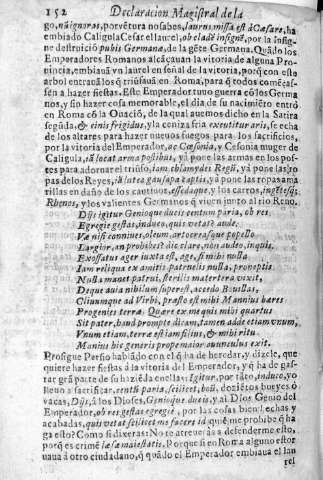 152 Declaracion Magistral de la
go, nũ ignoras, por vẽtura no sabes, laurus missa est à Cæsare, ha
embiado Caligula Cesar el laurel, ob cladẽ insignẽ, por la insig-
ne destruició pubis Germanæ, de la gẽte Germana. Quãdo los
Emperadores Romanos alcãçauan la vitoria de alguna Pro-
uincia, embiauã vn laurel en señal de la vitoria, porq̃ con este
arbol entrauã los q̃ triũfauã en Roma, para q̃ todos comẽças-
sen a hazer fiestas. Este Emperador tuuo guerra cõ los Germa
nos, y sin hazer cosa memorable, el dia de su nacimiẽto entrò
en Roma cõ la Ouació, de la qual auemos dicho en la Satira
segũda, & cinis frigidus, y la ceniza fria excutitur aris, se echa
de los altares para hazer nueuos fuegos, para los sacrificios,
por la vitoria del Emperador, ac Cæsonia, y Cesonia muger de
Caligula, iã locat arma postibus, ya pone las armas en los pos-
tes para adornar el triũfo, iam chlamydes Regũ, ya pone las ro
pas delos Reyes, iã lutea gausapa captis, ya pone las ropas ama
rillas en daño de los cautiuos, essedaque, y los carros, ingẽtesq;
Rhenos, y los valientes Germanos q̃ viuen junto al rio Reno.
Dijs igitur Genioque ducis centum paria, ob res
Egregie gestas, induco, quis vetat? aude.
Væ nisi connives, oleum, artocreasque popello
Largior, an prohibes? dic clare, non audeo, inquis.
Exossatus ager iuxta est, age, si mihi nulla
Iam reliqua ex amitis patruelis nulla, proneptis
Nulla manet patrui, sterilis matertera vixit,
Deque auia nibilum superest, acedo Bouillas,
Cliuumque ad Virbi, præsto est mihi Mannius hæres
Progenies terræ. Quære ex me quis mihi quartus
Sit pater, haud prompte dicam, tamen adde etiam vnum,
Vnum etiam, terræ est iam filius, & mihi ritu
Manius hic generis prope maior auunculus exit.
Prosigue Persio hablãdo con el q̃ ha de heredar, y dizele, que
quiere hazer fiestas à la vitoria del Emperador, y q̃ ha de gas-
tar grã parte de su haziẽda en ellas: Igitur, por tãto, induco, yo
lleuo a sacrificar, centũ paria, scilicet, boũ, dozientos bueyes ó
vacas, Dijs, à los Dioses, Genioque ducis, y al Dios Genio del
Emperador, ob res gestas egregie, por las cosas bien hechas y
acabadas, quis vetat scilicet me facere id quẽ me prohibe q̃ ha
ga esto? Como si dixeras: No te atreuerás a defenderme esto,
porq̃ es crimẽ læsæ maiestatis. Porque si en Roma alguno estor
uaua à otro ciudadano, q̃ quando el Emperador embiaua el lau
rel